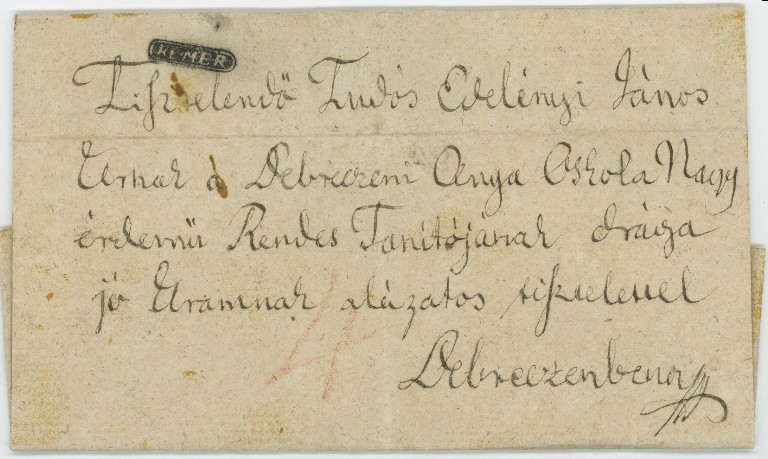 KEMER
Tisztelendő Tudós Edelényi János
Urnak a Debreczeni Anya Oskola Nagy
érdemü Rendes Tanítójának drága
jó Uramnak alázatos tisztelettel
4
Debreczenben